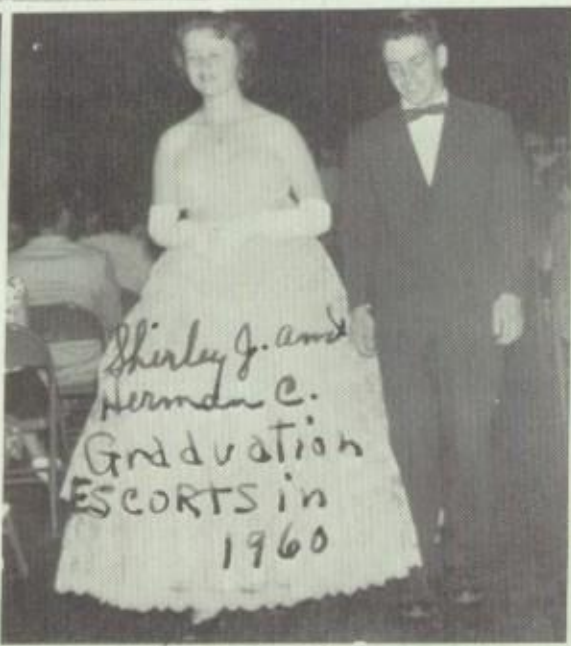 Shirley J. and
Herman C.
Graduation
ESCORTS in
1960